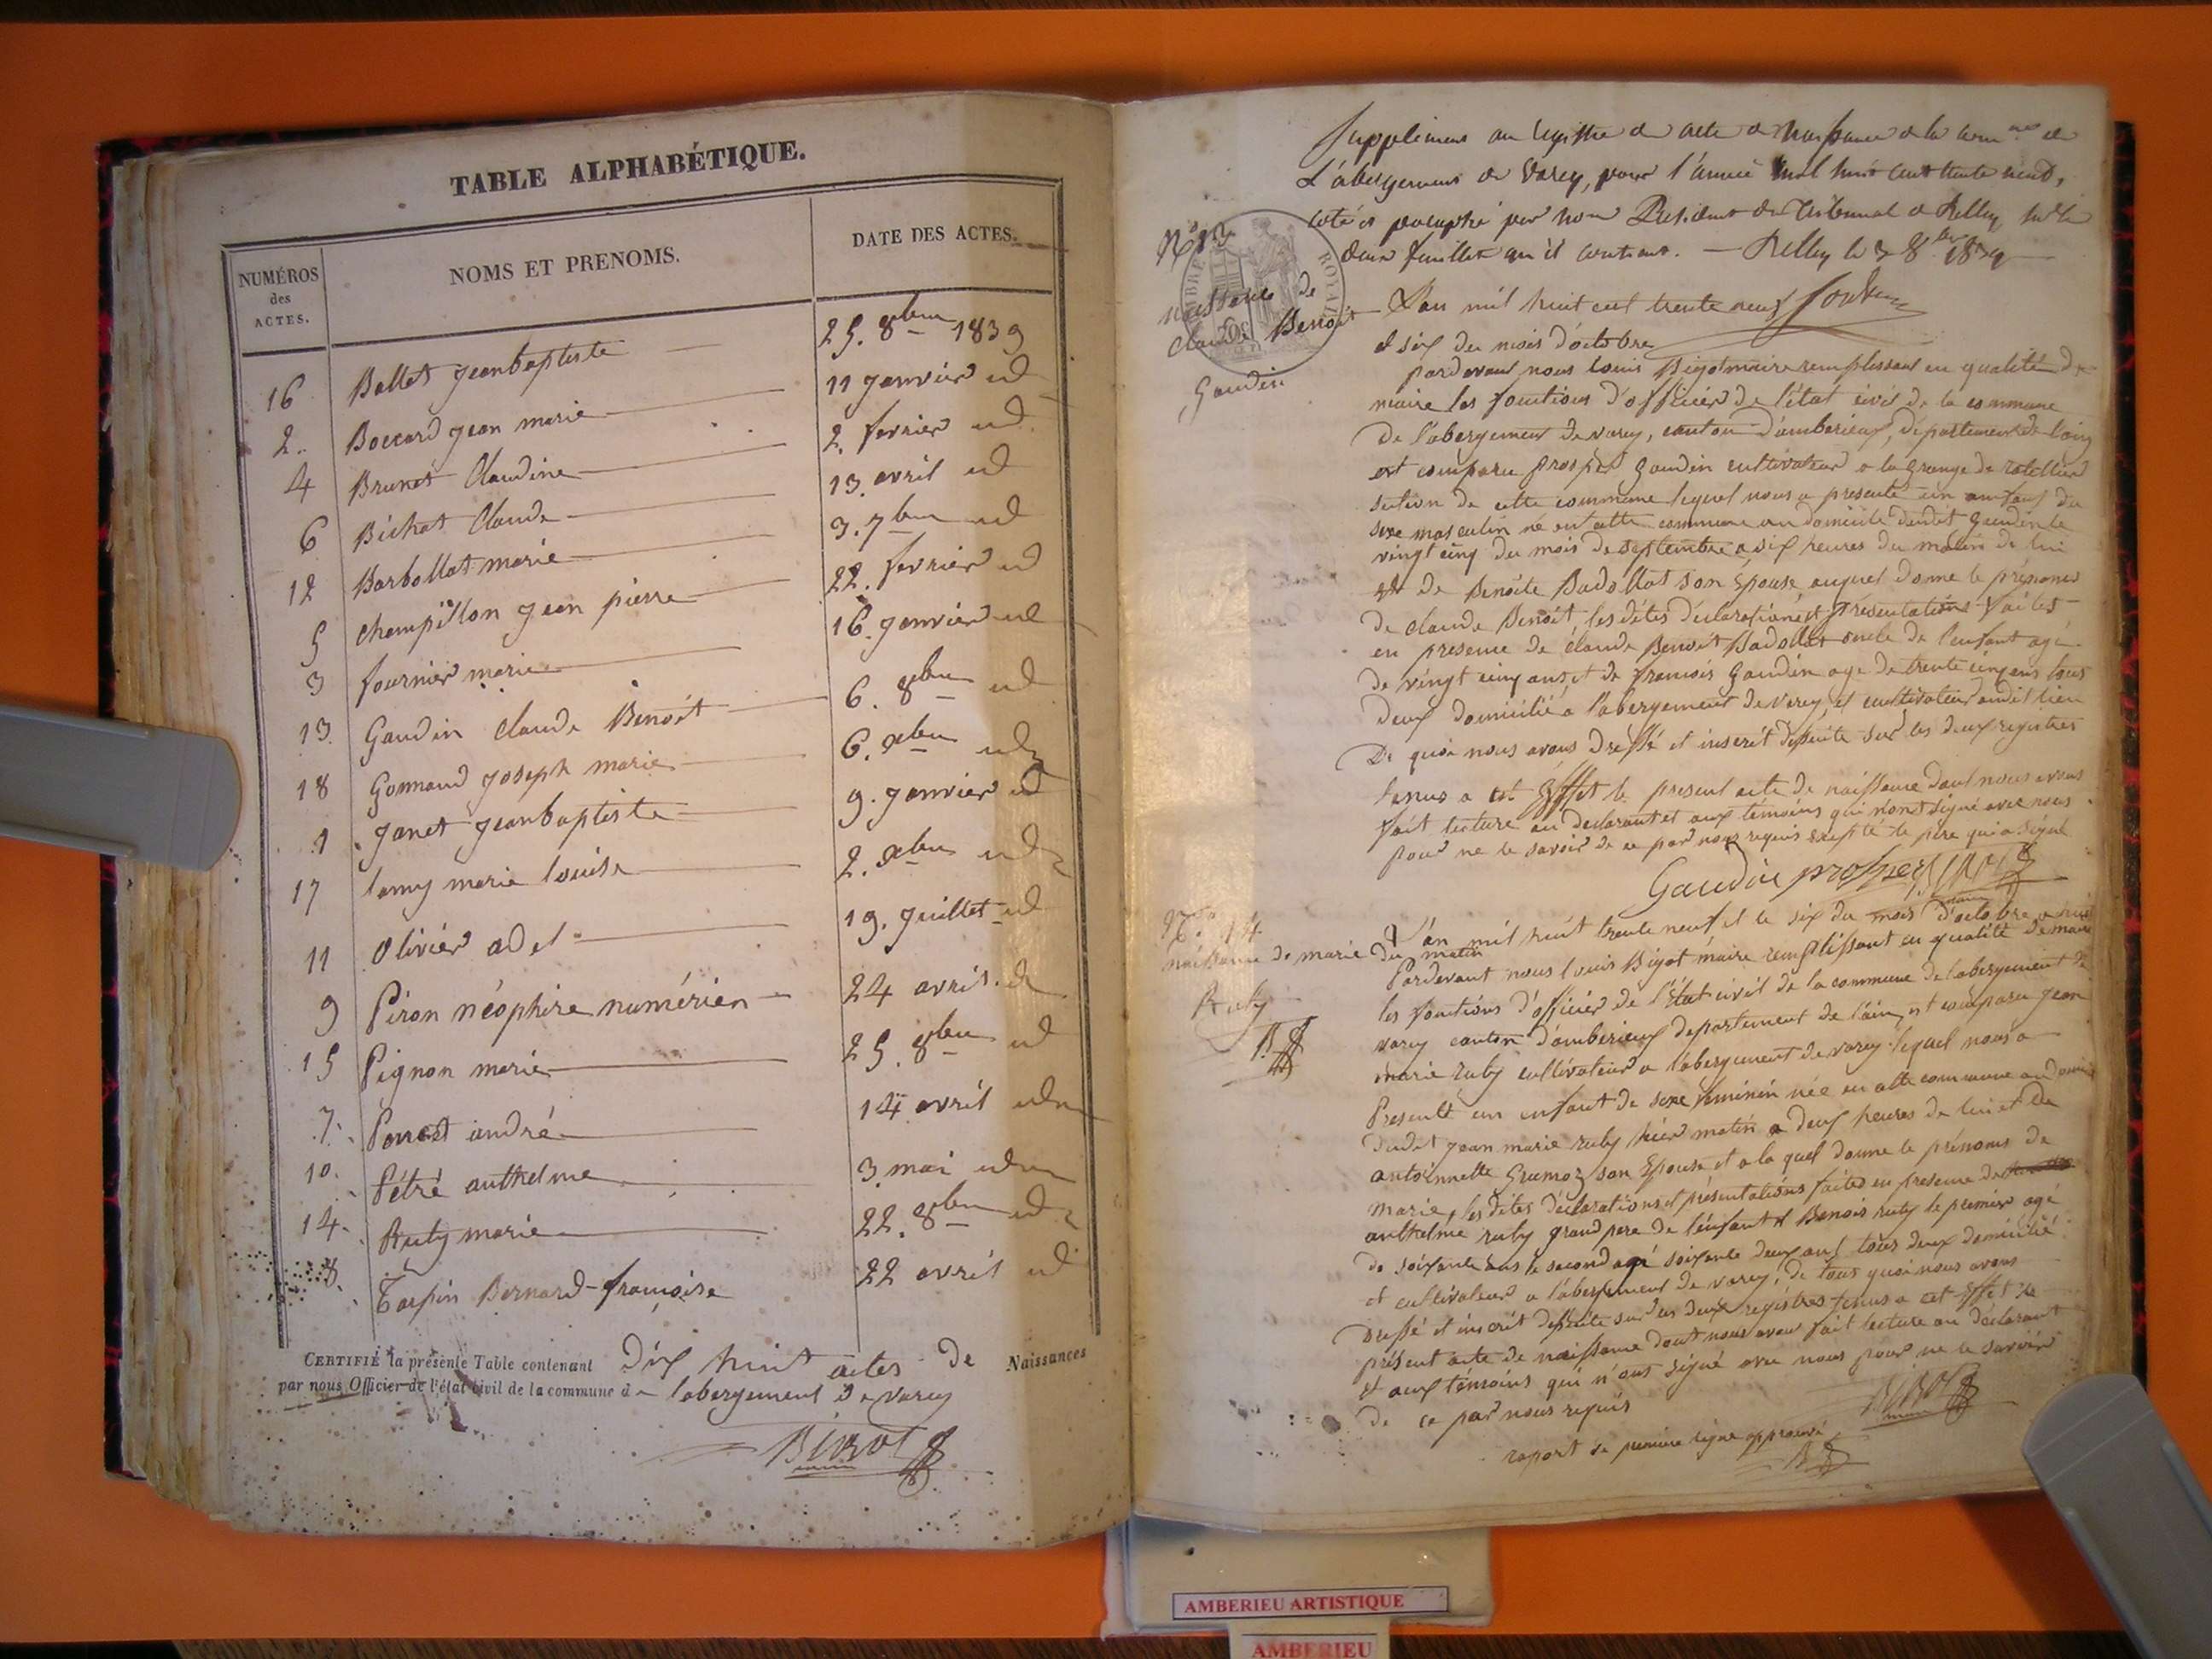 TABLE ALPHABÉTIQUE.
NUMÉROS des ACTES.
NOMS ET PRENOMS.
DATE DES ACTES.
16 Ballet Jeanbaptiste 25. 8bre 1839
2. Boccard Jean marie 11 Janvier id
4 Brunet Claudine 2. fevrier id
6 Bichat Claude 13. avril id
12 Barbollat marie 3. 7bre id
5 champillon Jean pierre 22. fevrier id
3 fournier marie 16. Janvier id
13. Gaudin Claude Benoit 6. 8bre id
18 Gonnand Joseph marie 6. xbre id
1 Janet Jeanbaptiste 9. Janvier id
17 lamy marie louise 2. xbre id
11 Olivier adel 19. Juillet id
9 Piron néophire numérien 24 avril. id
15 Pignon marie 25. 8bre id
7. andré 14 avril id
10. Pétré anthelme 3 mai id
14. Ruby marie 22. 8bre id
8. Tarpin Bernard-françoise 22 avril id
CERTIFIÉ la présente Table contenant Dix huit actes de Naissances
par nous Officier de l'état civil de la commune d l'abergement de varey
Bigot
Supplement au registre de acte de Naissance de la de
L'abergement de Varey, pour l'année mil huit cent trente neuf,
coté et paraphé par nous President du Tribunal de Belley, sur le
deux feuillets qu'il contient. — Belley le 3 8bre 1839
N° 13
naissance de
claude Benoit
Gaudin
TIMBRE ROYAL
L'an mil huit cent trente neuf
et six du mois d'octobre
pardevant nous louis Bigot maire remplissant en qualité de
maire les fonctions d'officier de l'état civil de la commune
de l'abergement de varey, canton d'amberieux, departement de l'ain
est comparu prosper Gaudin cultivateur a la grange de
section de cette commune lequel nous a presenté un enfant du
sexe masculin né en cette commune au domicile dudit Gaudin le
vingt cinq du mois de septembre a dix heures du matin de lui
et de Benoite Badollat son Epouse auquel donne le prénoms
de claude Benoit, les dites déclarations et presentations faites
en presence de claude Benoit Badollat oncle de l'enfant agé
de vingt cinq ans et de francois Gaudin age de trente cinq ans tous
deux domicilié a l'abergement de Varey, et cultivateur audit lieu
De quoi nous avons Dressé et inscrit desuite sur les deux registres
tenus a cet Effet le present acte de naissance dont nous avons
fait lecture au declarant et aux temoins qui n'ont signé avec nous
pour ne le savoir de ce par nous requis excepté le pere qui a signé
Gaudin prosper
N° 14
naissance de marie
Ruby
L'an mil huit trente neuf et le six du mois d'octobre a huit
du matin
Pardevant nous louis Bigot maire remplissant en qualité de maire
les fonctions d'officier de l'état civil de la commune de l'abergement de
varey canton d'amberieux departement de l'ain, est comparu Jean
marie ruby cultivateur a l'abergement de varey lequel nous a
Presenté un enfant de sexe féminin née en cette commune au domicile
dudit Jean marie ruby hier matin a deux heures de lui et de
antoinnette Grumoz son Epouse et a la quel donne le prénoms de
marie, les dites déclarations et présentations faites en presence de
anthelme ruby grand pere de l'enfant et Benois ruby le premier agé
de soixante ans le second agé soixante deux ans tous deux domicilié
et cultivateur a l'abergement de varey, de tous quoi nous avons
Dressé et inscrit desuite sur les deux registres tenus a cet Effet le
présent acte de naissance dont nous avons fait lecture au déclarant
et aux témoins qui n'ont signé avec nous pour ne le savoir
de ce par nous requis
Bigot
raport de premiere ligne approuvé
AMBERIEU ARTISTIQUE
AMBERIEU